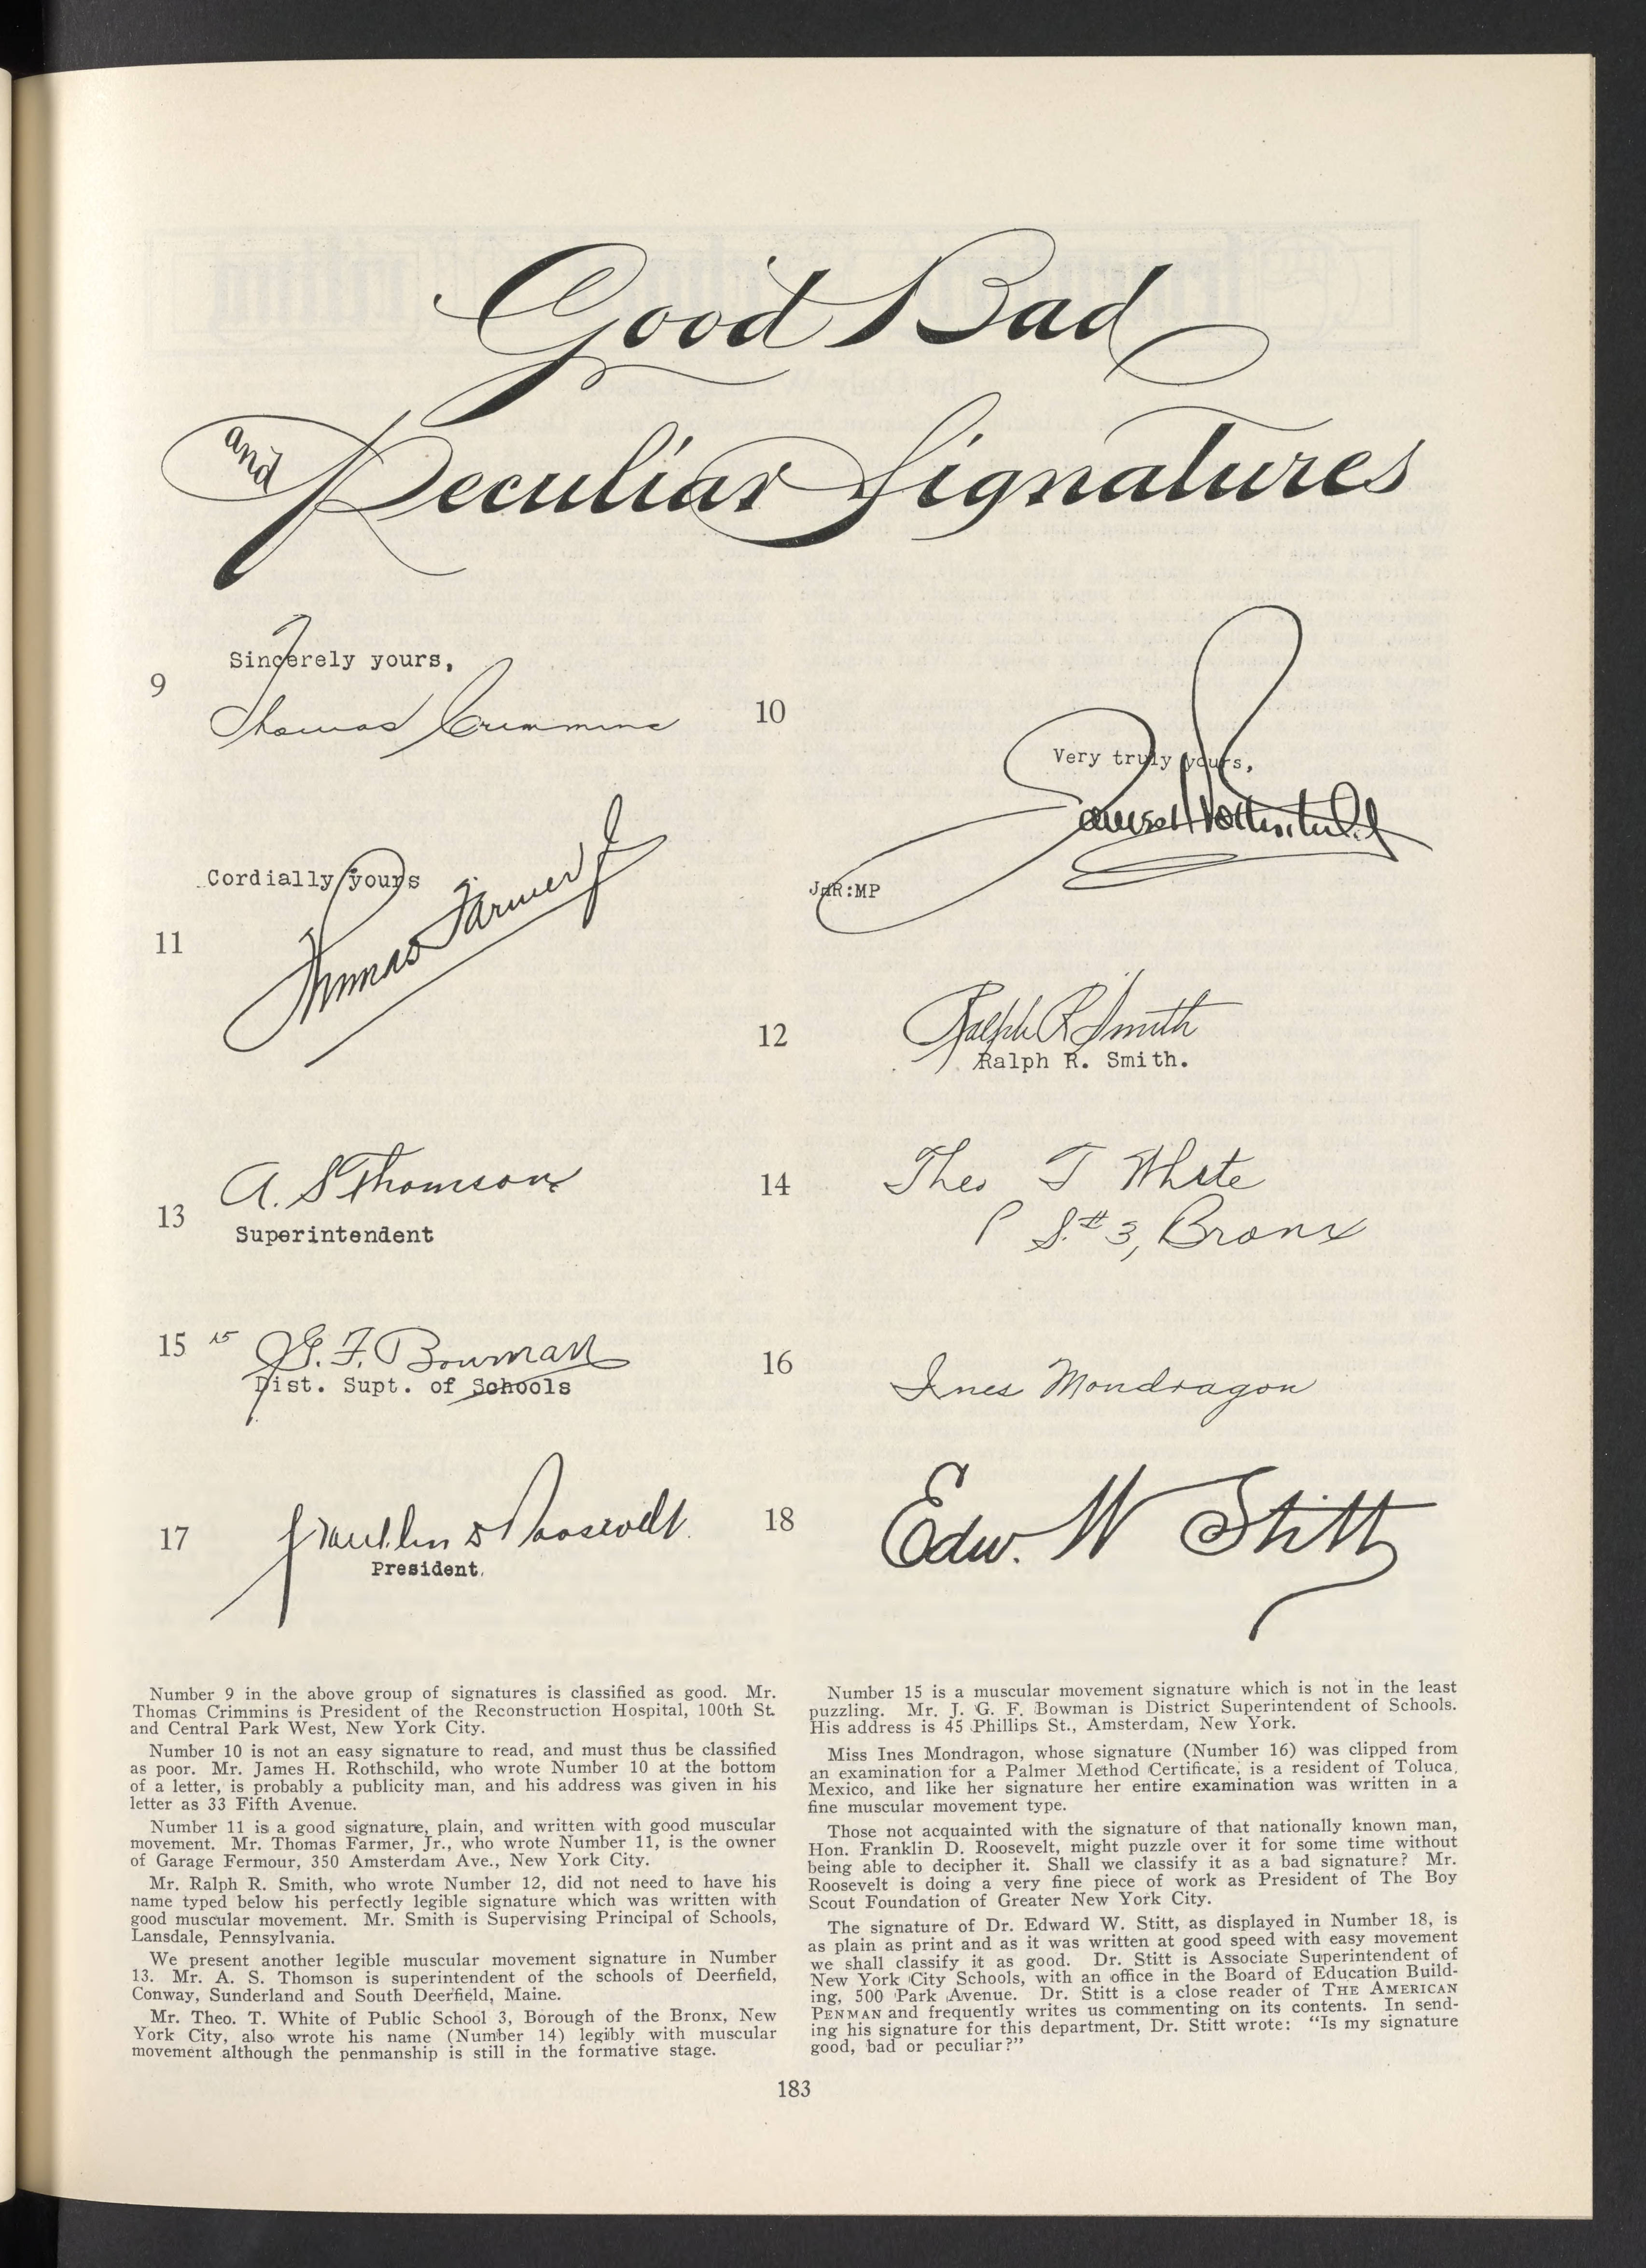 Good Bad
and Peculiar Signatures
9
Sincerely yours,
Thomas Crimmins
10
Very truly yours,
James H Rothschild
JHR:MP
Cordially yours
11
Thomas Farmer Jr
12
Ralph R Smith
Ralph R. Smith.
13
A. S Thomson
Superintendent
14
Theo T White
P S.# 3, Bronx
15
15
J. G. F. Bowman
Dist. Supt. of Schools
16
Ines Mondragon
17
Franklin D Roosevelt
President.
18
Edw. W Stitt
Number 9 in the above group of signatures is classified as good. Mr.
Thomas Crimmins is President of the Reconstruction Hospital, 100th St.
and Central Park West, New York City.
Number 10 is not an easy signature to read, and must thus be classified
as poor. Mr. James H. Rothschild, who wrote Number 10 at the bottom
of a letter, is probably a publicity man, and his address was given in his
letter as 33 Fifth Avenue.
Number 11 is a good signature, plain, and written with good muscular
movement. Mr. Thomas Farmer, Jr., who wrote Number 11, is the owner
of Garage Fermour, 350 Amsterdam Ave., New York City.
Mr. Ralph R. Smith, who wrote Number 12, did not need to have his
name typed below his perfectly legible signature which was written with
good muscular movement. Mr. Smith is Supervising Principal of Schools,
Lansdale, Pennsylvania.
We present another legible muscular movement signature in Number
13. Mr. A. S. Thomson is superintendent of the schools of Deerfield,
Conway, Sunderland and South Deerfield, Maine.
Mr. Theo. T. White of Public School 3, Borough of the Bronx, New
York City, also wrote his name (Number 14) legibly with muscular
movement although the penmanship is still in the formative stage.
Number 15 is a muscular movement signature which is not in the least
puzzling. Mr. J. G. F. Bowman is District Superintendent of Schools.
His address is 45 Phillips St., Amsterdam, New York.
Miss Ines Mondragon, whose signature (Number 16) was clipped from
an examination for a Palmer Method Certificate, is a resident of Toluca,
Mexico, and like her signature her entire examination was written in a
fine muscular movement type.
Those not acquainted with the signature of that nationally known man,
Hon. Franklin D. Roosevelt, might puzzle over it for some time without
being able to decipher it. Shall we classify it as a bad signature? Mr.
Roosevelt is doing a very fine piece of work as President of The Boy
Scout Foundation of Greater New York City.
The signature of Dr. Edward W. Stitt, as displayed in Number 18, is
as plain as print and as it was written at good speed with easy movement
we shall classify it as good. Dr. Stitt is Associate Superintendent of
New York City Schools, with an office in the Board of Education Build-
ing, 500 Park Avenue. Dr. Stitt is a close reader of THE AMERICAN
PENMAN and frequently writes us commenting on its contents. In send-
ing his signature for this department, Dr. Stitt wrote: "Is my signature
good, bad or peculiar?"
183